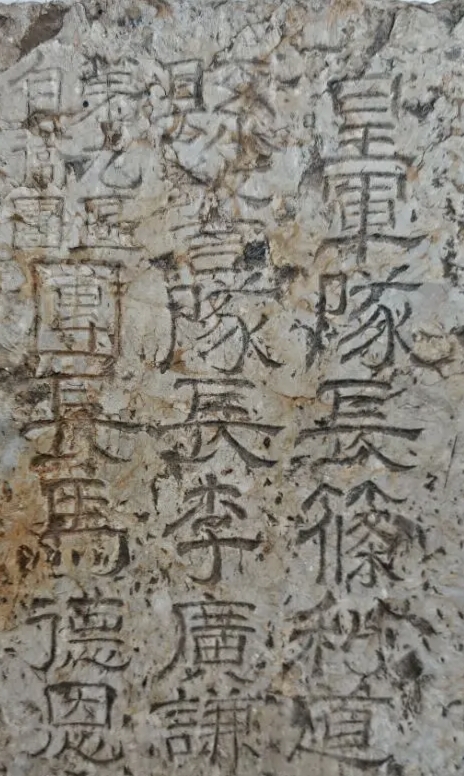 皇軍隊長篠道
縣警隊長李廣謙
第九區
自衛團
團長馬德恩